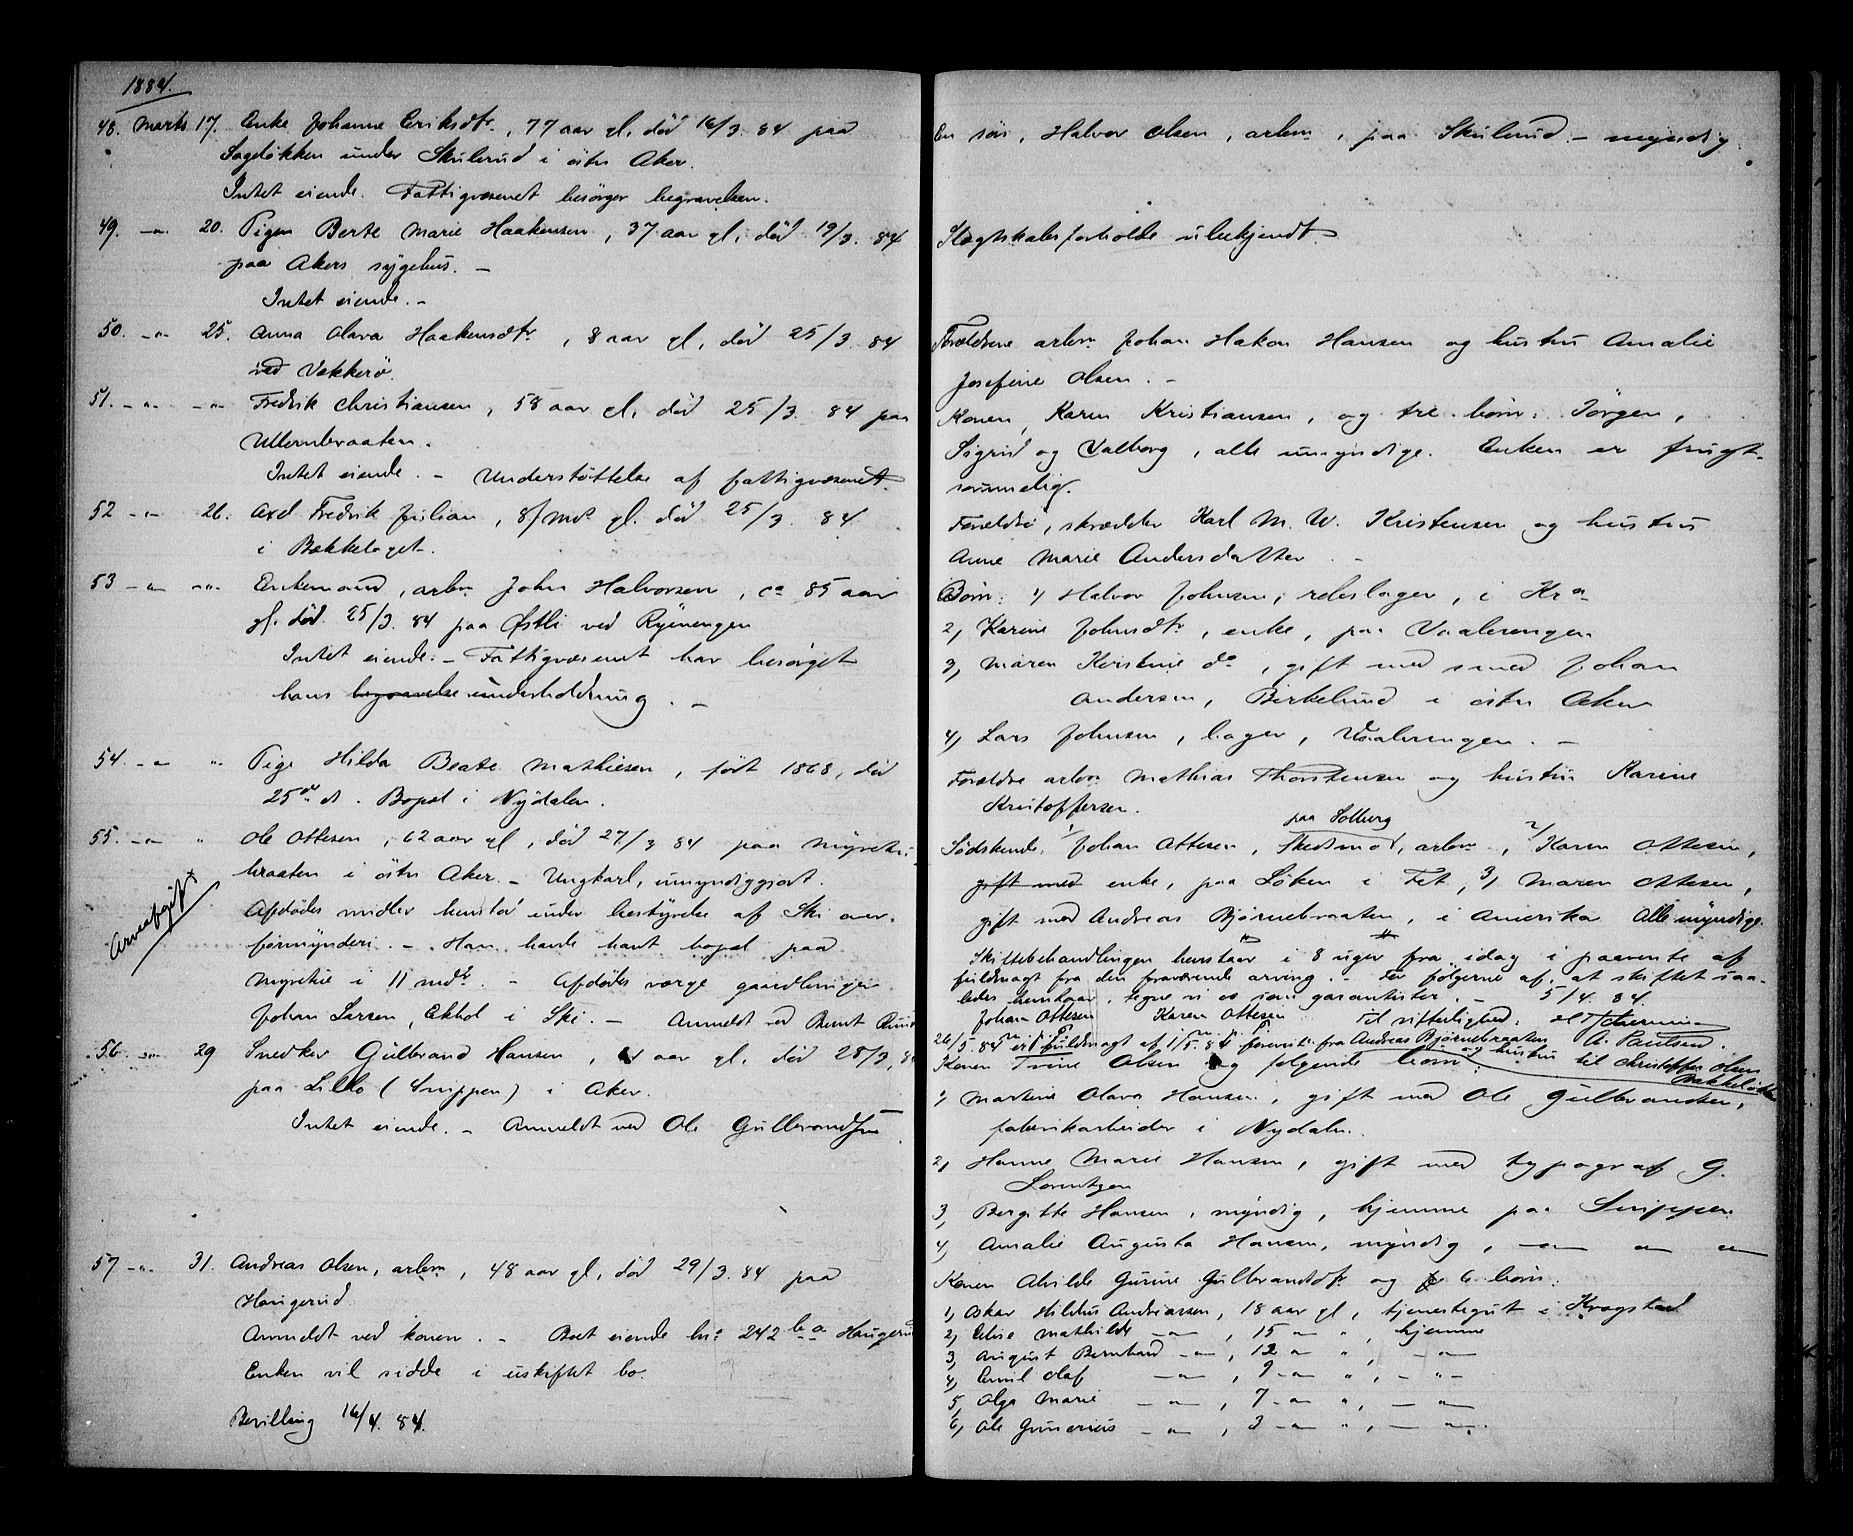 1884.
48. Marts 17. Enke Johanne Eriksdtr., 77 aar gl, död 16/3. 84 paa
Sagløkken under Skulerud i östre Aker.
Intet eiende. Fattigvæsenet besörger begravelsen.
49. -"- 20. Pigen Berte Marie Haakensen, 37 aar gl, död 19/3. 84
paa Akers sygehus. -
Intet eiende. -
50. -"- 25. Anna Olava Haakensdtr, 8 aar gl, död 25/3. 84
ved Vækkerö.
51. -"- -"- Fredrik Christiansen, 58 aar gl, död 25/3. 84 paa
Ullernbraaten.
Intet eiende. - Understöttelse af fattigvæsenet.
52 -"- 26. Axel Fredrik Julian, 8/ mdr gl. död 25/3. 84
i Bækkelaget.
53 -"- -"- Enkemand, arbm John Halvorsen, ca 85 aar
gl. död 25/3. 84 paa Østli ved Ryenengen
Intet eiende. - Fattigvæsenet har besörget
hans begravelse underholdning. -
54. -"- " Pige Hilda Beate Mathiesen, födt 1868, död
25de ds. Bopæl i Nydalen.
55. -"- " Ole Ottesen, 62 aar gl, död 27/3 84 paa Myrer-
braaten i östre Aker. - Ungkarl, umyndiggjort.
Arveafgift
Afdödes midler henstod under bestyrelse af Ski over-
formynderi. - Han havde havt bopæl paa
i 11 mdr. - Afdödes værge gaardbruger
Johan Larsen, Ekhol i Ski. - Anmeldt ved Bernt
56. -"- 29 Snedker Gulbrand Hansen, aar gl, död 28/3. 84
paa Lillo (Snippen) i Aker.
Intet eiende. - Anmeldt ved Ole Gulbrandsen
57 -"- 31. Andreas Olsen, arbm, 48 aar gl, död 29/3. 84 paa
Haugerud.
Anmeldt ved konen. - Boet eiende br: 242 b a Haugerud
Enken vil sidde i uskiftet bo.
Bevilling 16/4. 84.
En sön, Halvor Olsen, arbm, paa Skulerud. - myndig.
Slægtskabsforholde ubekjendt.
Forældrene arbm Johan Hakon Hansen og hustru Amalie
Josefine Olsen. -
Konen, Karen Kristiansen, og tre börn: Jörgen,
Sigrid og Valborg, alle umyndige. Enken er frugt-
sommelig.
Forældre, skrædder Karl M. W. Kristensen og hustru
Anne Marie Andersdatter. -
Börn: 1) Halvor Johnsen, rebslager, i Kra
2) Karine Johnsdtr, enke, paa Vaalerengen
3) Maren Kirstine do, gift med smed Johan
Andersen, Birkelund i östre Aker
4) Lars Johnsen, bager, Vaalerengen. -
Forældre arbm Mathias Thorstensen og hustru Karine
Kristoffersen.
paa Solberg
Södskende: 1) Johan Ottesen, Skedsmo, arbm, 2) Karen Ottesen,
gift med enke, paa Löken i Fet, 3) Maren Ottesen,
gift med Andreas Bjørnebraaten, i Amerika Alle myndige.
Skiftebehandlingen henstaar i 8 uger fra idag i paavente af
fuldmagt fra den fraværende arving. - For fölgerne af, at skiftet saa-
ledes henstaar, tegne vi os som garantister. - 5/4. 84.
Johan Ottesen Karen Ottesen Til vitterlighed:
26/5. 84 fuldmagt af 1/5. 84 fra Andreas Bjørnebraaten A. Paulsen.
Konen Trine Olsen og følgende börn: og hustru til Christoffer Olsen
Bakkeløkken
1) Martine Olava Hansen, gift med Ole Gulbrandsen,
fabrikarbeider i Nydalen.
2) Hanne Marie Hansen, gift med typograf G.
Lorentzen
3) Bergitte Hansen, myndig, hjemme paa Snippen.
4) Amalie Augusta Hansen, myndig, -"- " -"-
Konen Gurine Gulbrandsdtr og 6 börn:
1) Oskar Hildus Andreassen, 18 aar gl, tjenestegut i Kragstad
2) Elise Mathilde -"-, 15 -"- ", hjemme
3) August Bernhard -"-, 12 -"- ", -"-
4) Emil Olaf -"-, 9 -"- ", -"-
5) Olga Marie -"-, 7 -"- ", -"-
6) Ole Gunerius -"-, 3 -"- ", -"-